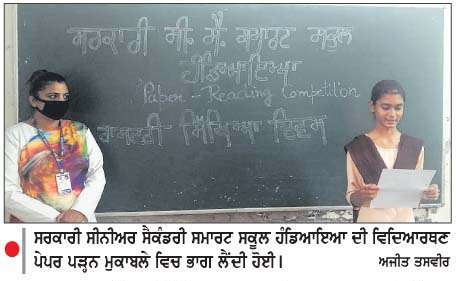 ਸਰਕਾਰੀ ਸੀ. ਸੈ. ਸਮਾਰਟ ਸਕੂਲ
ਹੰਡਿਆਇਆ
Paper - Reading Competition
ਰਾਸ਼ਟਰੀ ਸਿੱਖਿਆ ਦਿਵਸ
ਸਰਕਾਰੀ ਸੀਨੀਅਰ ਸੈਕੰਡਰੀ ਸਮਾਰਟ ਸਕੂਲ ਹੰਡਿਆਇਆ ਦੀ ਵਿਦਿਆਰਥਣ
ਪੇਪਰ ਪੜ੍ਹਨ ਮੁਕਾਬਲੇ ਵਿਚ ਭਾਗ ਲੈਂਦੀ ਹੋਈ। ਅਜੀਤ ਤਸਵੀਰ